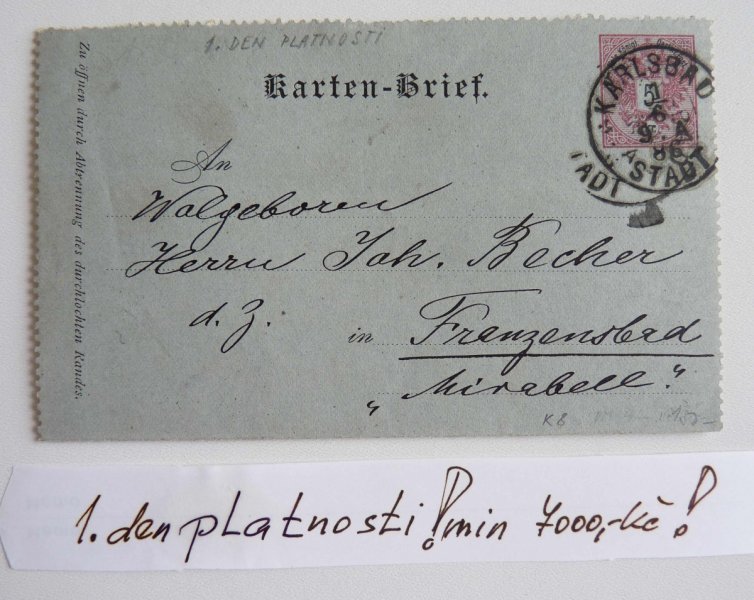 1. DEN PLATNOSTI
Karten-Brief.
Zu öffnen durch Abtrennung des durchlochten Randes.
KARLSBAD
1
6
9. A
86
STADT
TADT
5
An
Wolgeboren
Herrn Joh. Becher
d. Z. in Franzensbad
„Mirabell."
K 8
1. den platnosti! min 7000,-kč!